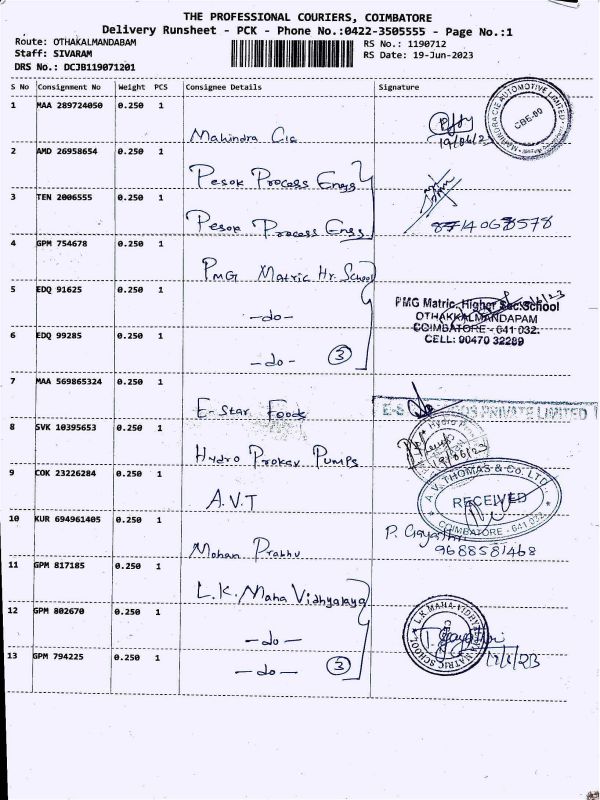 THE PROFESSIONAL COURIERS, COIMBATORE
Delivery Runsheet - PCK - Phone No.:0422-3505555 - Page No.:1
Route: OTHAKALMANDABAM
RS No.: 1190712
Staff: SIVARAM
RS Date: 19-Jun-2023
DRS No.: DCJB119071201
S No Consignment No Weight PCS Consignee Details Signature
1 MAA 289724050 0.250 1 Mahindra Cie
MAHINDRA CIE AUTOMOTIVE LIMITED
CBE-00
19/06/23
2 AMD 26958654 0.250 1 Pesok Process Engs
3 TEN 2006555 0.250 1 Pesok Process Engs
8714068578
4 GPM 754678 0.250 1 PMG Matric Hr. School
5 EDQ 91625 0.250 1 -do-
PMG Matric. Higher Sec.School
OTHAKKALMANDAPAM
COIMBATORE - 641 032.
CELL: 90470 32289
6 EDQ 99285 0.250 1 -do- 3
7 MAA 569865324 0.250 1 E-Star Foods
PRIVATE LIMITED
8 SVK 10395653 0.250 1 Hydro Prokav Pumps
19/06/23
9 COK 23226284 0.250 1 A.V.T
A.V. THOMAS & Co. LTD.
RECEIVED
COIMBATORE - 641 032.
10 KUR 694961405 0.250 1 Mohan Prabhu
P. Gayathri
9688581468
11 GPM 817185 0.250 1 L.K. Maha Vidhyalaya
12 GPM 802670 0.250 1 -do-
13 GPM 794225 0.250 1 -do- 3